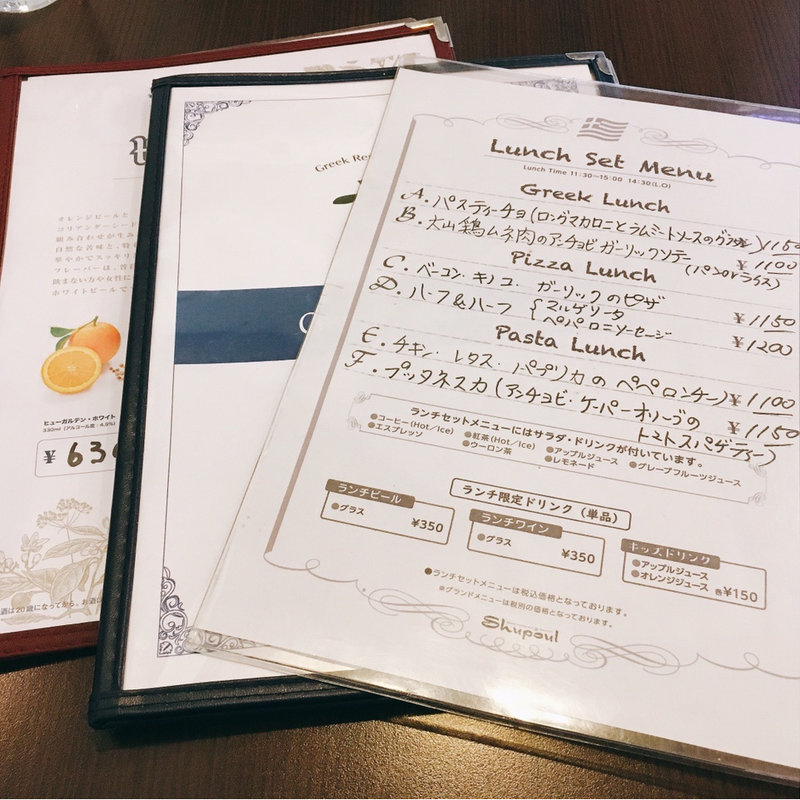 Lunch Set Menu
Lunch Time 11:30~15:00 14:30(L.O)
Greek Lunch
A. パスティーチョ(ロングマカロニとラムミートソースのグラタン) ¥1150
B. 大山鶏ムネ肉のアンチョビガーリックソテー ¥1100
(パンorライス)
Pizza Lunch
C. ベーコン・キノコ ガーリックのピザ ¥1150
D. ハーフ&ハーフ { マルゲリータ ¥1200
ペパロニソーセージ
Pasta Lunch
E. チキン・レタス・パプリカのペペロンチーノ ¥1100
F. プッタネスカ(アンチョビ・ケーパーオリーブの ¥1150
トマトスパゲティー)
ランチセットメニューにはサラダ・ドリンクが付いています。
●コーヒー(Hot/Ice) ●紅茶(Hot/Ice) ●アップルジュース ●グレープフルーツジュース
●エスプレッソ ●ウーロン茶 ●レモネード
ランチ限定ドリンク(単品)
ランチビール
●グラス ¥350
ランチワイン
●グラス ¥350
キッズドリンク
●アップルジュース
●オレンジジュース 各¥150
●ランチセットメニューは税込価格となっております。
※グランドメニューは税別の価格となっております。
Shupoul
Greek Re
オレンジピールと
コリアンダーシード
組み合わせが生み
自然な苦味と、特
華やかでスッキリ
フレーバーは、苦
飲まない方や女性に
ホワイトビールで
ヒューガルデン・ホワイト
330ml (アルコール度:4.9%)
¥630
酒は20歳になってから。お酒